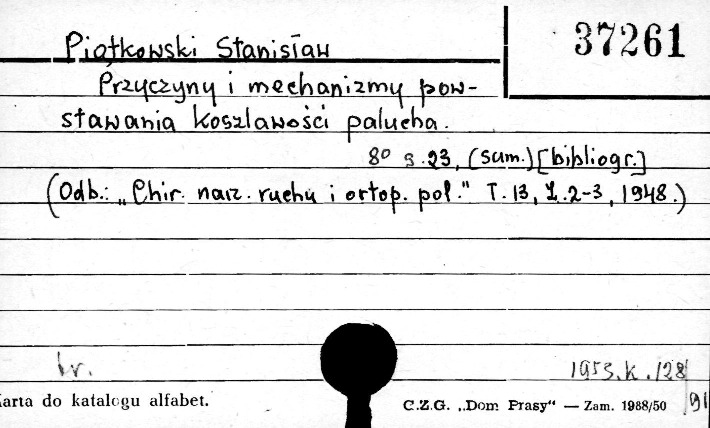 37261
Piątkowski Stanisław
Przyczyny i mechanizmy pow-
stawania koszlawości palucha.
8° s. 23, (sum.) [bibliogr.]
(Odb.: „Chir. narz. ruchu i ortop. pol." T. 13, Z. 2-3, 1948.)
br.
1953.K./128
91
Karta do katalogu alfabet.
C.Z.G. „Dom Prasy“ — Zam. 1988/50